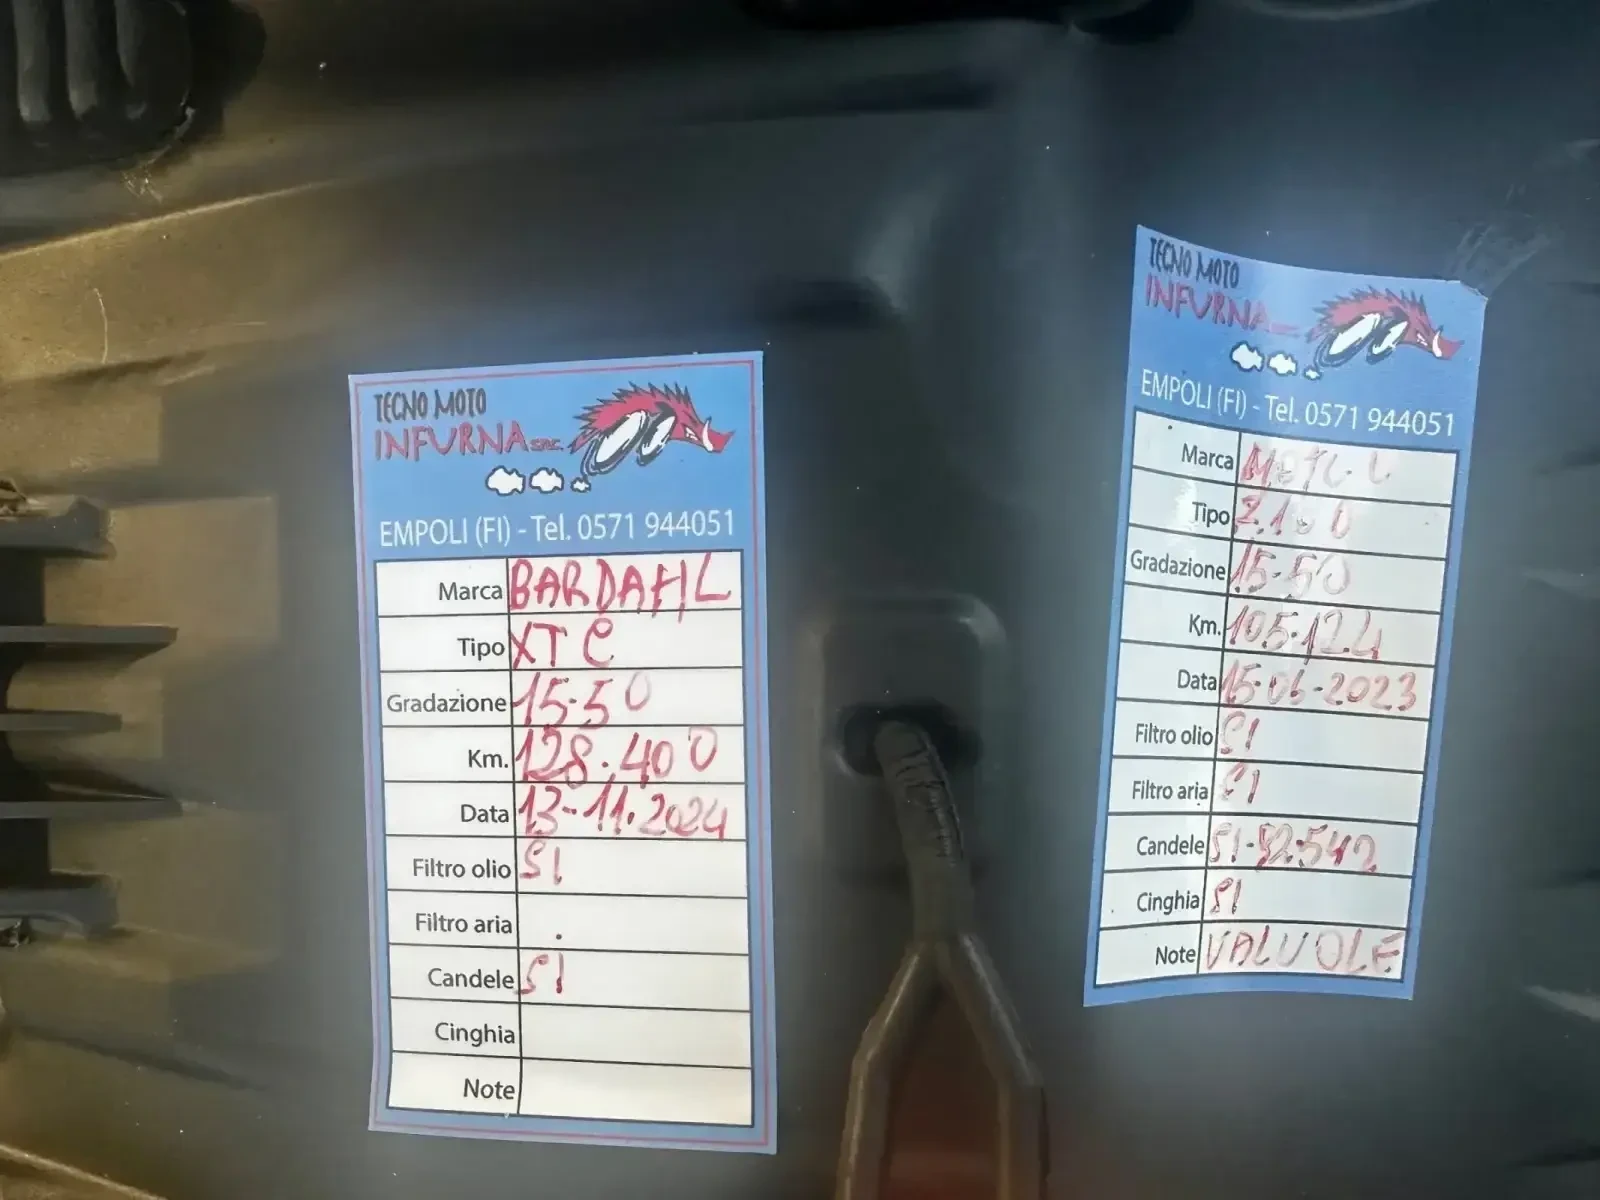 TECNO MOTO
INFURNA snc
EMPOLI (FI) - Tel. 0571 944051
Marca BARDAHL
Tipo XTC
Gradazione 15-50
Km. 128.400
Data 13-11.2024
Filtro olio SI
Filtro aria
Candele SI
Cinghia
Note
TECNO MOTO
INFURNA
EMPOLI (FI) - Tel. 0571 944051
Marca
Tipo
Gradazione 15-50
Km. 105.124
Data 15-06-2023
Filtro olio SI
Filtro aria SI
Candele SI-92.542
Cinghia SI
Note VALVOLE